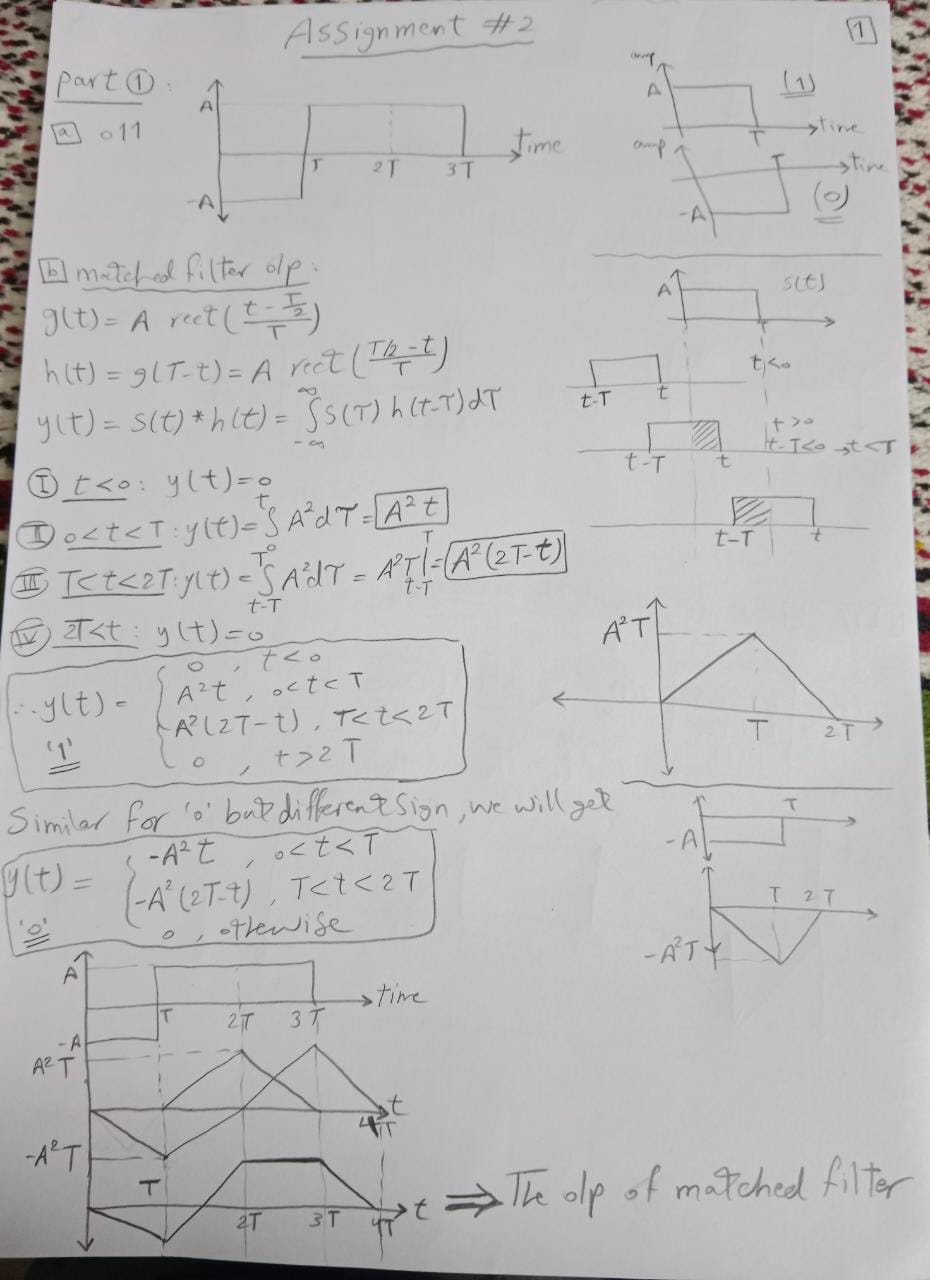 Assignment #2
1
part ① :
a 011
A
-A
T 2T 3T
time
amp
A
(1)
T
time
amp
T
time
-A
(0)
b matched filter o/p :
g(t) = A rect((t - T/2)/T)
h(t) = g(T-t) = A rect((T/2 - t)/T)
y(t) = s(t) * h(t) = ∫_{-∞}^{∞} s(T) h(t-T) dT
Ⓘ t<0 : y(t) = 0
Ⅱ 0<t<T : y(t) = ∫_{0}^{t} A² dT = A² t
Ⅲ T<t<2T : y(t) = ∫_{t-T}^{T} A² dT = A² T |_{t-T}^{T} = A² (2T-t)
Ⅳ 2T<t : y(t) = 0
∴ y(t) = { 0 , t<0
A² t , 0<t<T
A² (2T-t) , T<t<2T
0 , t>2T
'1'
A
s(t)
T
t<0
t-T t
t>0
t-T<0 → t<T
t-T t
t-T t
A² T
T 2T
Similar for '0' but different sign, we will get
y(t) = { -A² t , 0<t<T
-A² (2T-t) , T<t<2T
0 , otherwise
'0'
T
-A
T 2T
-A² T
A
T 2T 3T
time
-A
A² T
t
4T
-A² T
T
2T 3T 4T
t ⇒ The o/p of matched filter